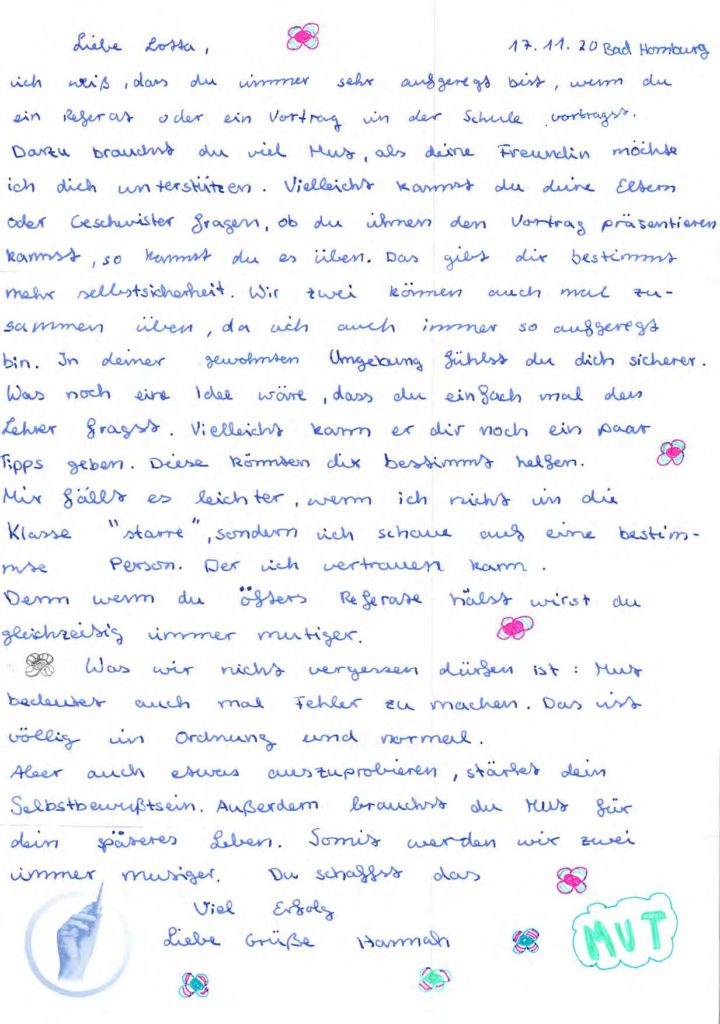 Liebe Lotta,
17.11.20 Bad Homburg
ich weiß, das du immer sehr aufgeregt bist, wenn du
ein Referat oder ein Vortrag in der Schule vortragst.
Darzu brauchst du viel Mut, als deine Freundin möchte
ich dich unterstützen. Vielleicht kannst du deine Eltern
oder Geschwister fragen, ob du ihnen den Vortrag präsentieren
kannst, so kannst du es üben. Das gibt dir bestimmt
mehr selbstsicherheit. Wir zwei können auch mal zu-
sammen üben, da ich auch immer so aufgeregt
bin. In deiner gewohnten Umgebung fühlst du dich sicherer.
Was noch eine Idee wäre, dass du einfach mal den
Lehrer fragst. Vielleicht kann er dir noch ein paar
Tipps geben. Diese könnten dir bestimmt helfen.
Mir fällt es leichter, wenn ich nicht in die
Klasse "starre", sondern ich schaue auf eine bestim-
mte Person. Der ich vertrauen kann.
Denn wenn du öfters Referate hälst wirst du
gleichzeitig immer mutiger.
Was wir nicht vergessen dürfen ist: Mut
bedeutet auch mal Fehler zu machen. Das ist
völlig in Ordnung und normal.
Aber auch etwas auszuprobieren, stärkt dein
Selbstbewußtsein. Außerdem brauchst du Mut für
dein späteres Leben. Somit werden wir zwei
immer mutiger. Du schaffst das
Viel Erfolg
Liebe Grüße Hannah
MUT